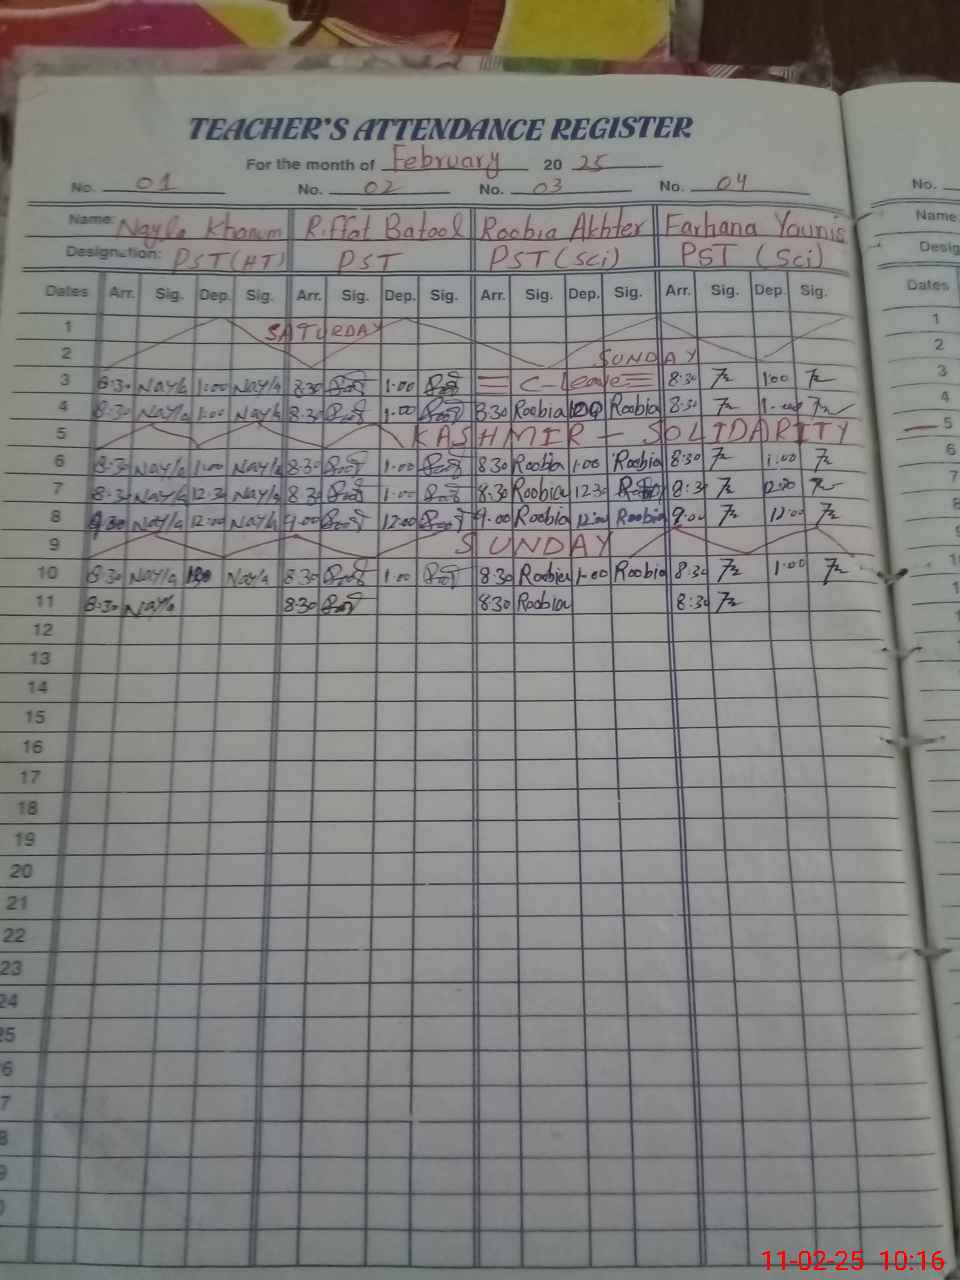 TEACHER'S ATTENDANCE REGISTER
For the month of February 20 25
No. 01 No. 02 No. 03 No. 04 No.
Name: Nayla Khanum Riffat Batool Roobia Akhter Farhana Younis Name
Designation: PST(HT) PST PST (Sci) PST (Sci) Desig
Dates Arr. Sig. Dep. Sig. Arr. Sig. Dep. Sig. Arr. Sig. Dep. Sig. Arr. Sig. Dep. Sig. Dates
1 SATURDAY 1
2 SUNDAY 2
3 8:30 Nayla 1:00 Nayla 8:30 1:00 C-Leave 8:30 1:00 3
4 8:30 Nayla 1:00 Nayla 8:30 1:00 8:30 Roobia 1:00 Roobia 8:30 1:00 4
5 KASHMIR - SOLIDARITY 5
6 8:30 Nayla 1:00 Nayla 8:30 1:00 8:30 Roobia 1:00 Roobia 8:30 1:00 6
7 8:30 Nayla 12:30 Nayla 8:30 1:00 8:30 Roobia 12:30 8:30 7
8 9:30 Nayla 12:00 Nayla 9:00 12:00 9:00 Roobia 12:00 Roobia 9:00 12:00 8
9 SUNDAY
10 8:30 Nayla Nayla 8:30 1:00 8:30 Roobia 1:00 Roobia 8:30 1:00
11 8:30 Nayla 8:30 8:30 Roobia 8:30
12
13
14
15
16
17
18
19
20
21
22
23
24
25
6
7
8
9
0
11-02-25 10:16